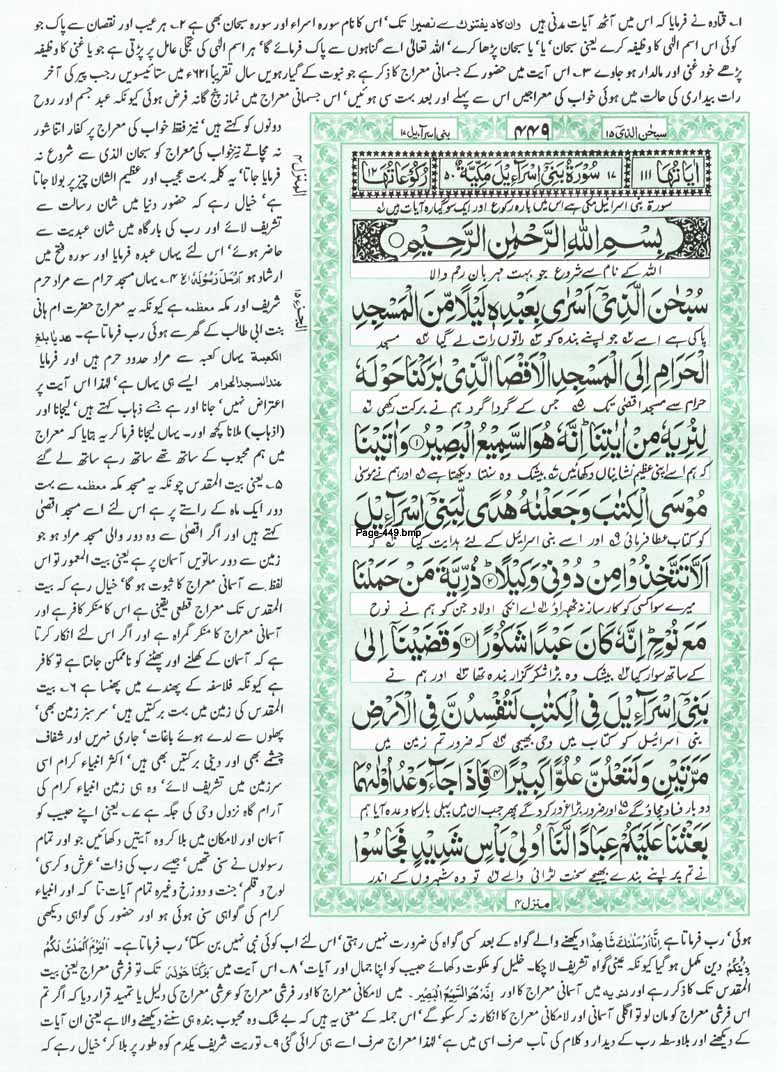 ۱۔ قتادہ نے فرمایا کہ اس میں آٹھ آیات مدنی ہیں وان كادوا يفتنونك سے نصیرا تک' اس کا نام سورہ اسراء اور سورہ سبحان بھی ہے ۲۔ ہر عیب اور نقصان سے پاک جو
کوئی اس اسم الٰہی کا وظیفہ کرے یعنی سبحان' یا' یا سبحان پڑھا کرے' اللہ تعالیٰ اسے گناہوں سے پاک فرمائے گا' ہر اسم الٰہی کی تجلی عامل پر پڑتی ہے جو یا غنی کا وظیفہ
پڑھے خود غنی اور مالدار ہو جاوے ۳۔ اس آیت میں حضور کے جسمانی معراج کا ذکر ہے جو نبوت کے گیارہویں سال تقریباً ۶۲۱ء میں ستائیسویں رجب پیر کی آخر
رات بیداری کی حالت میں ہوئی خواب کی معراجیں اس سے پہلے اور بعد بہت سی ہوئیں' اس جسمانی معراج میں نماز پنج گانہ فرض ہوئی کیونکہ عبد جسم اور روح
سبحٰن الذی ۱۵
۴۴۹
بنی اسرآءیل ۱۷
اٰيَاتُهَا ۱۱۱
۱۷ سُوْرَةُ بَنِيْٓ اِسْرَآءِيْلَ مَكِّيَّةٌ ۵۰
رُكُوْعَاتُهَا ۱۲
سورۃ بنی اسرائیل مکی ہے اس میں بارہ رکوع اور ایک سو گیارہ آیات ہیں
بِسْمِ اللهِ الرَّحْمٰنِ الرَّحِيْمِ
اللہ کے نام سے شروع جو بہت مہربان رحم والا
سُبْحٰنَ الَّذِيْٓ اَسْرٰى بِعَبْدِهٖ لَيْلًا مِّنَ الْمَسْجِدِ
پاکی ہے اسے جو اپنے بندہ کو راتوں رات لے گیا مسجد
الْحَرَامِ اِلَى الْمَسْجِدِ الْاَقْصَا الَّذِيْ بٰرَكْنَا حَوْلَهٗ
حرام سے مسجد اقصیٰ تک جس کے گرداگرد ہم نے برکت رکھی
لِنُرِيَهٗ مِنْ اٰيٰتِنَا اِنَّهٗ هُوَ السَّمِيْعُ الْبَصِيْرُ ۱ وَاٰتَيْنَا
کہ ہم اسے اپنی عظیم نشانیاں دکھائیں بیشک وہ سنتا دیکھتا ہے اور ہم نے موسیٰ
مُوْسَى الْكِتٰبَ وَجَعَلْنٰهُ هُدًى لِّبَنِيْٓ اِسْرَآءِيْلَ
کو کتاب عطا فرمائی اور اسے بنی اسرائیل کے لئے ہدایت کیا کہ
Page-449.bmp
اَلَّا تَتَّخِذُوْا مِنْ دُوْنِيْ وَكِيْلًا ۲ ذُرِّيَّةَ مَنْ حَمَلْنَا
میرے سوا کسی کو کارساز نہ ٹھہراؤ اے انکی اولاد جن کو ہم نے نوح
مَعَ نُوْحٍ اِنَّهٗ كَانَ عَبْدًا شَكُوْرًا ۳ وَقَضَيْنَآ اِلٰى
کے ساتھ سوار کیا بیشک وہ بڑا شکر گزار بندہ تھا اور ہم نے
بَنِيْٓ اِسْرَآءِيْلَ فِي الْكِتٰبِ لَتُفْسِدُنَّ فِي الْاَرْضِ
بنی اسرائیل کو کتاب میں وحی بھیجی کہ ضرور تم زمین میں
مَرَّتَيْنِ وَلَتَعْلُنَّ عُلُوًّا كَبِيْرًا ۴ فَاِذَا جَآءَ وَعْدُ اُوْلٰىهُمَا
دوبار فساد مچاؤ گے اور ضرور بڑا غرور کرو گے پھر جب ان میں پہلی بار کا وعدہ آیا ہم
بَعَثْنَا عَلَيْكُمْ عِبَادًا لَّنَآ اُولِيْ بَاْسٍ شَدِيْدٍ فَجَاسُوْا
نے تم پر اپنے بندے بھیجے سخت لڑائی والے تو وہ شہروں کے اندر
منزل ۴
دونوں کو کہتے ہیں' نیز فقط خواب کی معراج پر کفار اتنا شور
نہ مچاتے نیز خواب کی معراج کو سبحان الذی سے شروع نہ
فرمایا جاتا' یہ کلمہ بہت عجیب اور عظیم الشان چیز پر بولا جاتا
ہے' خیال رہے کہ حضور دنیا میں شان رسالت سے
تشریف لائے اور رب کی بارگاہ میں شان عبدیت سے
حاضر ہوئے' اس لئے یہاں عبدہ فرمایا اور سورہ فتح میں
ارشاد ہو ارسل رسوله ۴۔ یہاں مسجد حرام سے مراد حرم
شریف اور مکہ معظمہ ہے کیونکہ یہ معراج حضرت ام ہانی
بنت ابی طالب کے گھر سے ہوئی رب فرماتا ہے۔ هديا بالغ
الكعبة یہاں کعبہ سے مراد حدود حرم ہیں اور فرمایا
عند المسجد الحرام ایسے ہی یہاں ہے' لہٰذا اس آیت پر
اعتراض نہیں' جانا اور ہے جسے ذہاب کہتے ہیں' لیجانا اور
(اذہاب) ملانا کچھ اور۔ یہاں لیجانا فرما کر یہ بتایا کہ معراج
میں ہم محبوب کے ساتھ تھے ساتھ رہے ساتھ لے گئے
۵۔ یعنی بیت المقدس چونکہ یہ مسجد مکہ معظمہ سے بہت
دور ایک ماہ کے راستے پر ہے اس لئے اسے مسجد اقصیٰ
کہتے ہیں اور اگر اقصیٰ سے وہ دور والی مسجد مراد ہو جو
زمین سے دور ساتویں آسمان پر ہے یعنی بیت المعمور تو اس
لفظ سے آسمانی معراج کا ثبوت ہو گا' خیال رہے کہ بیت
المقدس تک معراج قطعی یقینی ہے اس کا منکر کافر ہے اور
آسمانی معراج کا منکر گمراہ ہے اور اگر اس لئے انکار کرتا
ہے کہ آسمان کے کھلنے اور پھٹنے کو ناممکن جانتا ہے تو کافر
ہے کیونکہ فلاسفہ کے پھندے میں پھنسا ہے ۶۔ بیت
المقدس کی زمین میں بہت برکتیں ہیں' سرسبز زمین بھی'
پھلوں سے لدے ہوئے باغات' جاری نہریں اور شفاف
چشمے بھی اور دینی برکتیں بھی ہیں' اکثر انبیاء کرام اسی
سرزمین میں تشریف لائے' وہ ہی زمین انبیاء کرام کی
آرام گاہ نزول وحی کی جگہ ہے ۷۔ یعنی اپنے حبیب کو
آسمان اور لامکان میں بلا کر وہ آیتیں دکھائیں جو اور تمام
رسولوں نے سنی تھیں' جیسے رب کی ذات' عرش و کرسی'
لوح و قلم' جنت و دوزخ وغیرہ تمام آیات تا کہ اور انبیاء
کرام کی گواہی سنی ہوئی ہو اور حضور کی گواہی دیکھی
ہوئی' رب فرماتا ہے انا ارسلنك شاهدا دیکھنے والے گواہ کے بعد کسی گواہ کی ضرورت نہیں رہتی' اس لئے اب کوئی نبی نہیں بن سکتا' رب فرماتا ہے۔ اليوم اكملت لكم
دينكم دین مکمل ہو گیا کیونکہ عینی گواہ تشریف لا چکا۔ خلیل کو ملکوت دکھائے حبیب کو اپنا جمال اور آیات' ۸۔ اس آیت میں بركنا حوله تک تو فرشی معراج یعنی بیت
المقدس تک کا ذکر ہے اور لنريه میں آسمانی معراج کا اور انه هو السميع البصير۔ میں لامکانی معراج کا اور فرشی معراج کو عرشی معراج کی دلیل یا تمہید قرار دیا کہ اگر تم
اس فرشی معراج کو مان لو تو اگلی آسمانی اور لامکانی معراج کا انکار نہ کر سکو گے' اس جملہ کے معنی یہ ہیں کہ بے شک وہ محبوب بندہ ہی سننے دیکھنے والا ہے یعنی ان آیات
کے دیکھنے اور بلاوسطہ رب کے دیدار و کلام کی تاب صرف اسی میں ہے' لہٰذا معراج صرف اسے ہی کرائی گئی ۹۔ توریت شریف یکدم کوہ طور پر بلا کر' خیال رہے کہ